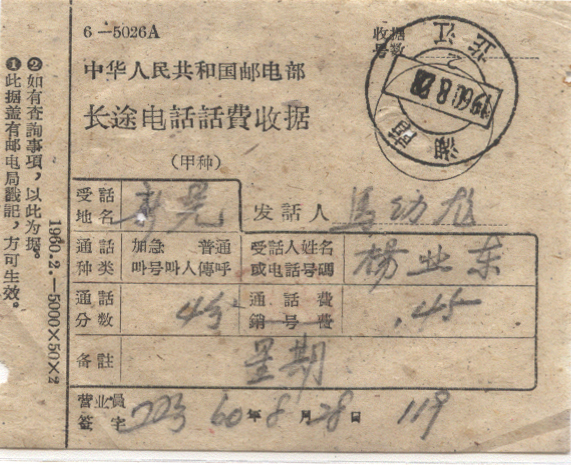 6—5026A
收据
号数
湖
芷江
1960.8.28
中华人民共和国邮电部
长途电話話費收据
(甲种)
受話
地名
新晃
发話人
馬幼
通話
种类
加急 普通
叫号叫人傳呼
受話人姓名
或电話号碼
楊业东
通話
分数
4分
通話費
銷号費
.45
备註
星期
营业員
签字
60年8月28日
119
❶此据盖有邮电局戳記，方可生效。
❷如有查詢事項，以此为据。
1960.2.—5000×50×2